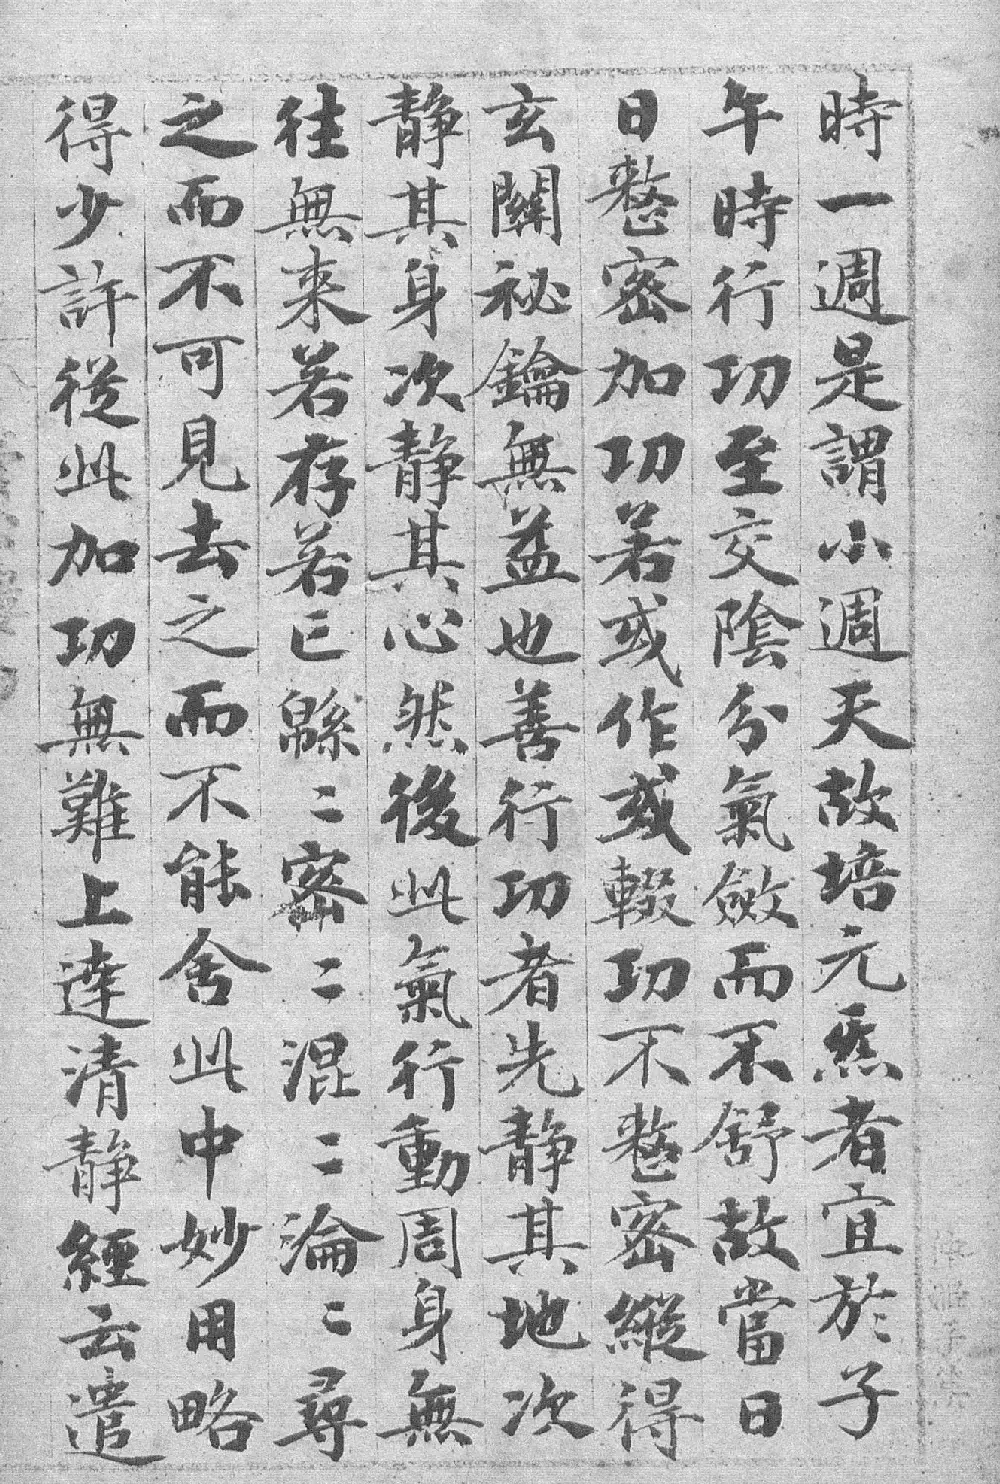 時一週是謂小週天故培元炁者宜於子
午時行功至交陰分氣斂而不舒故當日
日慗密加功若或作或輟功不慗密縱得
玄關祕鑰無益也善行功者先静其地次
静其身次静其心然後此氣行動周身無
往無来若存若亡緜〻密〻混〻淪〻尋
之而不可見去之而不能舍此中妙用略
得少許從此加功無難上達清静經云遣